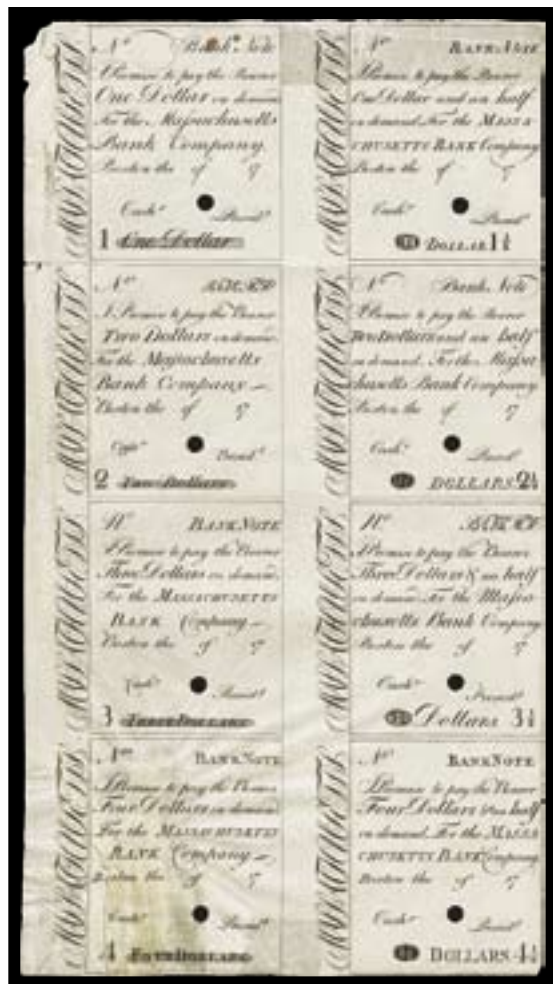 MASSACHUSETTS
No Bank Note
I Promise to pay the Bearer
One Dollar on demand
For the Massachusetts
Bank Company
Boston the of 17
Cashr Presidt
1 One Dollar
MASSACHUSETTS
No BANK Note
I Promise to pay the Bearer
One Dollar and an half
on demand For the MASSA
CHUSETTS BANK Company
Boston the of 17
Cashr Presidt
DOLLAR 1½
MASSACHUSETTS
No
I Promise to pay the Bearer
Two Dollars on demand
For the Massachusetts
Bank Company
Boston the of 17
Presidt
2 Two Dollars
MASSACHUSETTS
No Bank Note
I Promise to pay the Bearer
Two Dollars and an half
on demand. For the Massa
chusetts Bank Company
Boston the of 17
Cashr Presidt
DOLLARS 2½
MASSACHUSETTS
No BANK NOTE
I Promise to pay the Bearer
Three Dollars on demand
For the MASSACHUSETTS
BANK Company
Boston the of 17
Cashr Presidt
3 THREE DOLLARS
MASSACHUSETTS
No
I Promise to pay the Bearer
Three Dollars & an half
on demand For the Massa
chusetts Bank Company
Boston the of 17
Cashr Presidt
Dollars 3½
MASSACHUSETTS
No BANK NOTE
I Promise to pay the Bearer
Four Dollars on demand
For the MASSACHUSETTS
BANK Company
Boston the of 17
Cashr Presidt
4 FOUR DOLLARS
MASSACHUSETTS
No BANK NOTE
I Promise to pay the Bearer
Four Dollars & an half
on demand For the MASSA
CHUSETTS BANK Company
Boston the of 17
Cashr Presidt
DOLLARS 4½